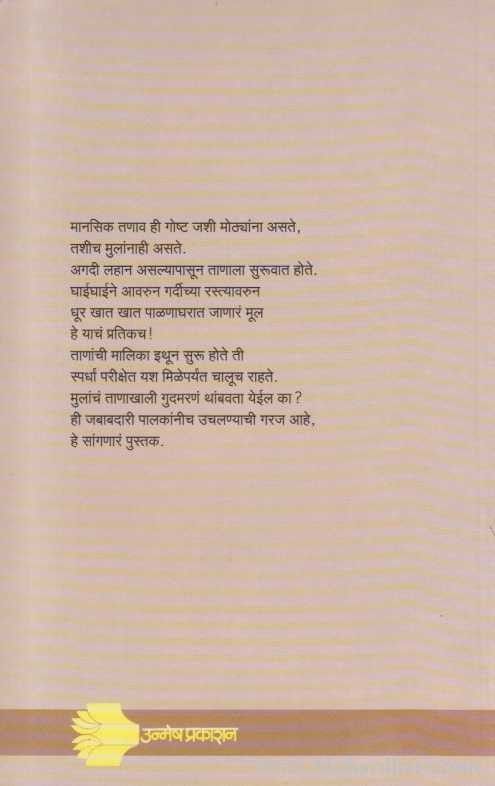 मानसिक तणाव ही गोष्ट जशी मोठ्यांना असते,
तशीच मुलांनाही असते.
अगदी लहान असल्यापासून ताणाला सुरूवात होते.
घाईघाईने आवरुन गर्दीच्या रस्त्यावरुन
धूर खात खात पाळणाघरात जाणारं मूल
हे याचं प्रतिकच!
ताणांची मालिका इथून सुरू होते ती
स्पर्धा परीक्षेत यश मिळेपर्यंत चालूच राहते.
मुलांचं ताणाखाली गुदमरणं थांबवता येईल का?
ही जबाबदारी पालकांनीच उचलण्याची गरज आहे,
हे सांगणारं पुस्तक.
उन्मेष प्रकाशन